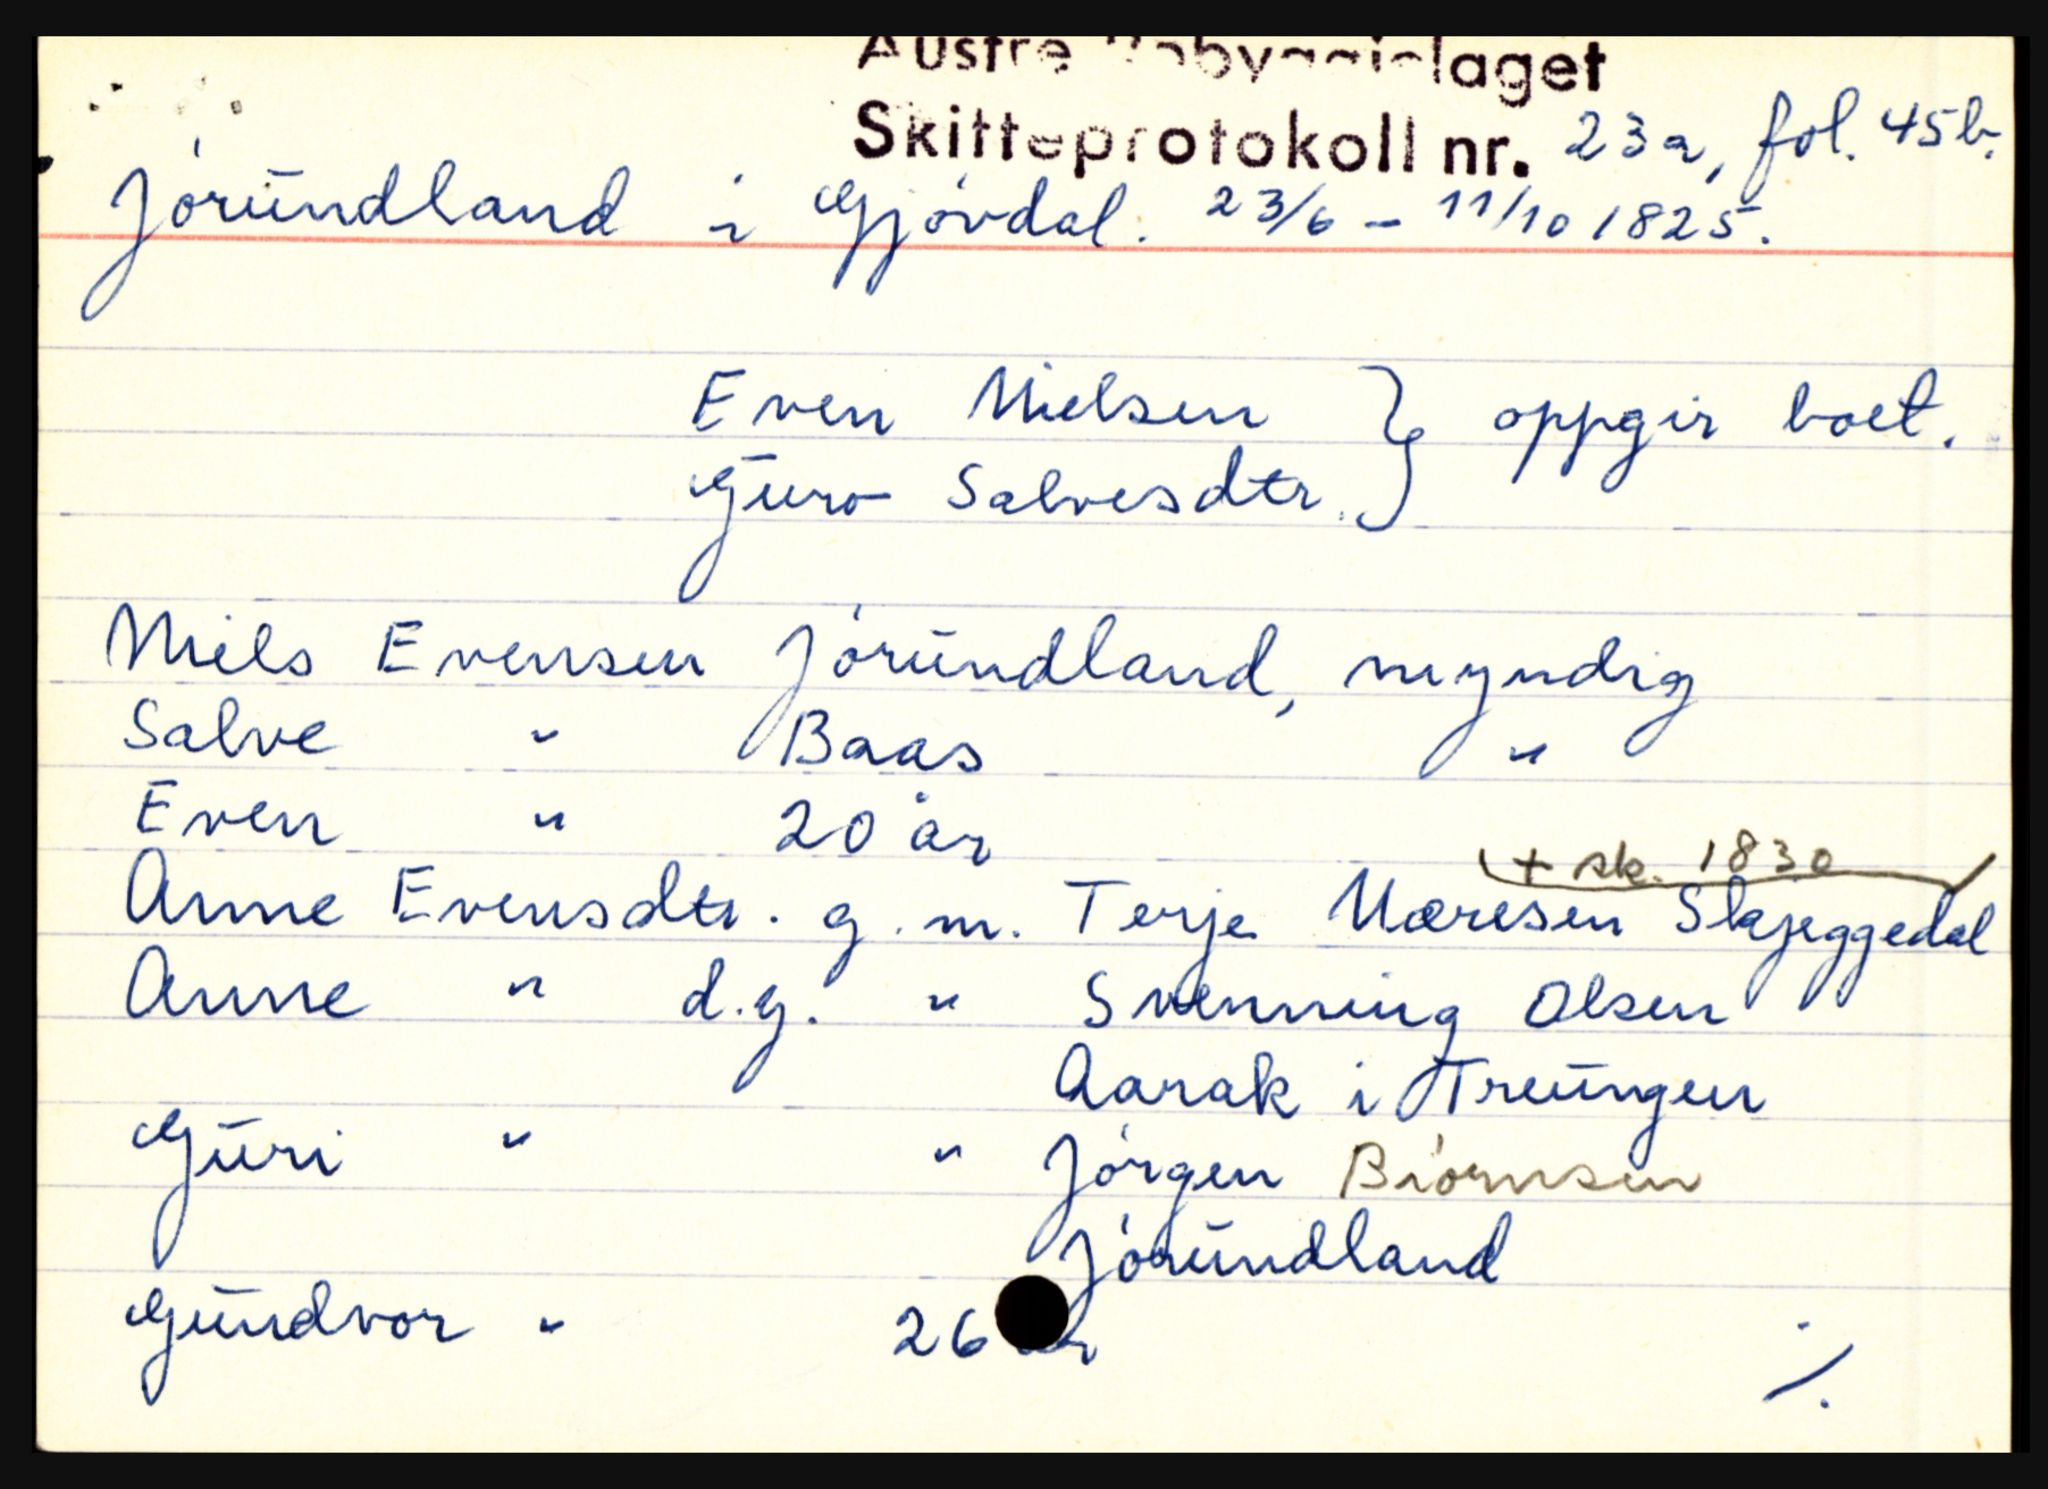 Austre laget
Skifteprotokoll nr. 23a, fol. 45b.
Jórundland i Gjóvdal. 23/6 - 11/10 1825.
Even Nielsen } oppgir boet.
Guro Salvesdtr.
Niels Evensen Jórundland, myndig
Salve " Baas "
Even " 20 år
+ sk. 1830
Anne Evensdtr. g. m. Terje Næresen Skjeggedal
Anne " d.y. " Svenning Olsen
Aarak i Treungen
Guri " " Jórgen Biórnsen
Jórundland
Gundvor " 26 år
./.